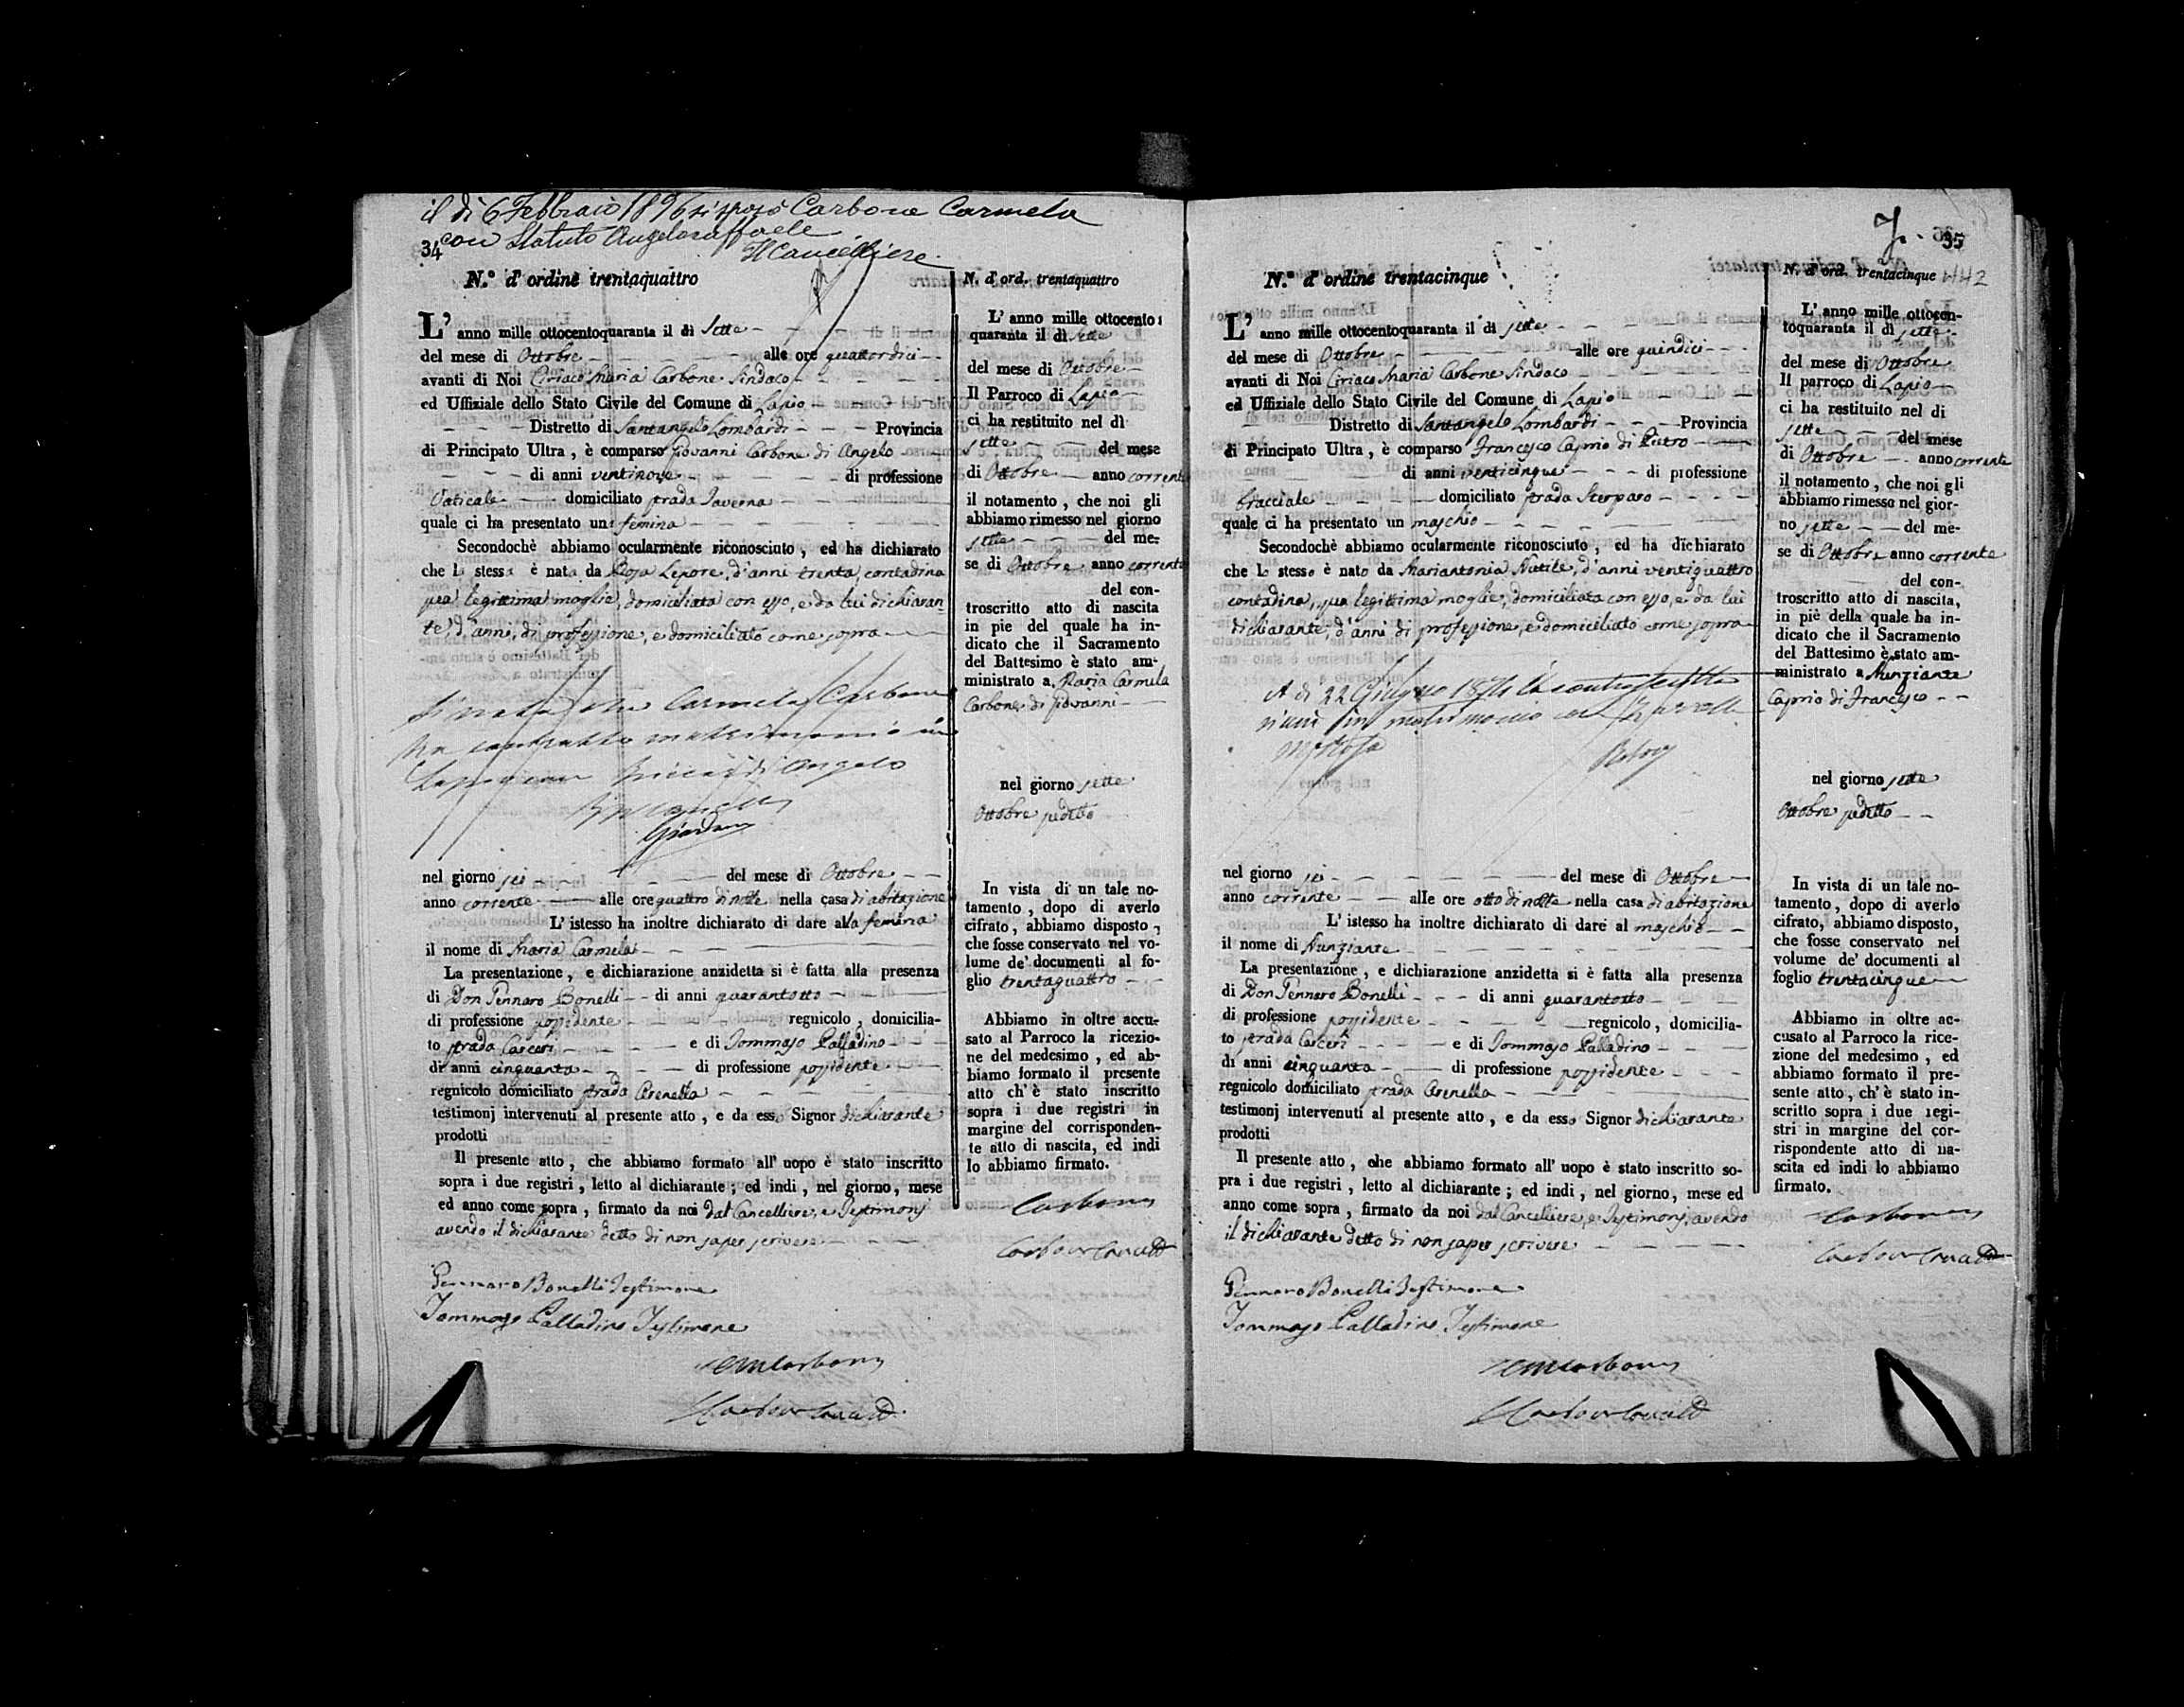 il dì 6 Febbraio 1896 si sposò Carbone Carmela
con Statuto Angeloraffaele
34
Il Cancelliere
N.º d'ordine trentaquattro
L'anno mille ottocentoquaranta il dì Sette
del mese di Ottobre alle ore quattordici
avanti di Noi Ciriaco Maria Carbone Sindaco
ed Uffiziale dello Stato Civile del Comune di Lapio
Distretto di Santangelo Lombardi Provincia
di Principato Ultra, è comparso Giovanni Carbone di Angelo
di anni ventinove di professione
Vaticale domiciliato strada Taverna
quale ci ha presentato una femina
Secondochè abbiamo ocularmente riconosciuto, ed ha dichiarato
che la stessa è nata da Rosa Lepore, d'anni trenta, contadina
sua legittima moglie, domiciliata con esso, e da lui dichiaran-
te, d'anni, di professione, e domiciliato come sopra
Carmela Carbone
ha contratto matrimonio in
Angelo
Giordano
nel giorno sei del mese di Ottobre
anno corrente alle ore quattro di notte nella casa di abitazione
L'istesso ha inoltre dichiarato di dare alla femina
il nome di Maria Carmela
La presentazione, e dichiarazione anzidetta si è fatta alla presenza
di Don Gennaro Bonelli di anni quarantotto
di professione possidente regnicolo, domicilia-
to strada Carceri e di Tommaso Palladino
di anni cinquanta di professione possidente
regnicolo domiciliato strada Arenella
testimonj intervenuti al presente atto, e da esso Signor dichiarante
prodotti
Il presente atto, che abbiamo formato all'uopo è stato inscritto
sopra i due registri, letto al dichiarante; ed indi, nel giorno, mese
ed anno come sopra, firmato da noi dal Cancelliere, e Testimonj
avendo il dichiarante detto di non saper scrivere
Gennaro Bonelli Testimone
Tommaso Palladino Testimone
N. d'ord. trentaquattro
L'anno mille ottocento
quaranta il dì sette
del mese di Ottobre
Il Parroco di Lapio
ci ha restituito nel dì
sette del mese
di Ottobre anno corrente
il notamento, che noi gli
abbiamo rimesso nel giorno
sette del me-
se di Ottobre anno corrente
del con-
troscritto atto di nascita
in pie del quale ha in-
dicato che il Sacramento
del Battesimo è stato am-
ministrato a Maria Carmela
Carbone di Giovanni
nel giorno sette
Ottobre sudetto
In vista di un tale no-
tamento, dopo di averlo
cifrato, abbiamo disposto,
che fosse conservato nel vo-
lume de' documenti al fo-
glio trentaquattro
Abbiamo in oltre accu-
sato al Parroco la ricezio-
ne del medesimo, ed ab-
biamo formato il presente
atto ch'è stato inscritto
sopra i due registri in
margine del corrisponden-
te atto di nascita, ed indi
lo abbiamo firmato.
Carbone
35
442
N.º d'ordine trentacinque
L'anno mille ottocentoquaranta il dì sette
del mese di Ottobre alle ore quindici
avanti di Noi Ciriaco Maria Carbone Sindaco
ed Uffiziale dello Stato Civile del Comune di Lapio
Distretto di Santangelo Lombardi Provincia
di Principato Ultra, è comparso Francesco Caprio di Pietro
di anni venticinque di professione
bracciale domiciliato strada Sterparo
quale ci ha presentato un maschio
Secondochè abbiamo ocularmente riconosciuto, ed ha dichiarato
che lo stesso è nato da Mariantonia Nutile, d'anni ventiquattro
contadina, sua legittima moglie, domiciliata con esso, e da lui
dichiarante, d'anni di professione, e domiciliato come sopra
A dì 22 Giugno 1874 il controscritto
in matrimonio
nel giorno sei del mese di Ottobre
anno corrente alle ore otto di notte nella casa di abitazione
L'istesso ha inoltre dichiarato di dare al maschio
il nome di Nunziante
La presentazione, e dichiarazione anzidetta si è fatta alla presenza
di Don Gennaro Bonelli di anni quarantotto
di professione possidente regnicolo, domicilia-
to strada Carceri e di Tommaso Palladino
di anni cinquanta di professione possidente
regnicolo domiciliato strada Arenella
testimonj intervenuti al presente atto, e da esso Signor dichiarante
prodotti
Il presente atto, che abbiamo formato all'uopo è stato inscritto so-
pra i due registri, letto al dichiarante; ed indi, nel giorno, mese ed
anno come sopra, firmato da noi dal Cancelliere, e Testimonj, avendo
il dichiarante detto di non saper scrivere
Gennaro Bonelli Testimone
Tommaso Palladino Testimone
N. d'ord. trentacinque
L'anno mille ottocen-
toquaranta il dì sette
del mese di Ottobre
Il parroco di Lapio
ci ha restituito nel di
sette del mese
di Ottobre anno corrente
il notamento, che noi gli
abbiamo rimesso nel gior-
no sette del me-
se di Ottobre anno corrente
del con-
troscritto atto di nascita,
in piè della quale ha in-
dicato che il Sacramento
del Battesimo è stato am-
ministrato a Nunziante
Caprio di Francesco
nel giorno sette
Ottobre sudetto
In vista di un tale no-
tamento, dopo di averlo
cifrato, abbiamo disposto,
che fosse conservato nel
volume de' documenti al
foglio trentacinque
Abbiamo in oltre ac-
cusato al Parroco la rice-
zione del medesimo, ed
abbiamo formato il pre-
sente atto, ch'è stato in-
scritto sopra i due regi-
stri in margine del cor-
rispondente atto di na-
scita ed indi lo abbiamo
firmato.
Carbone